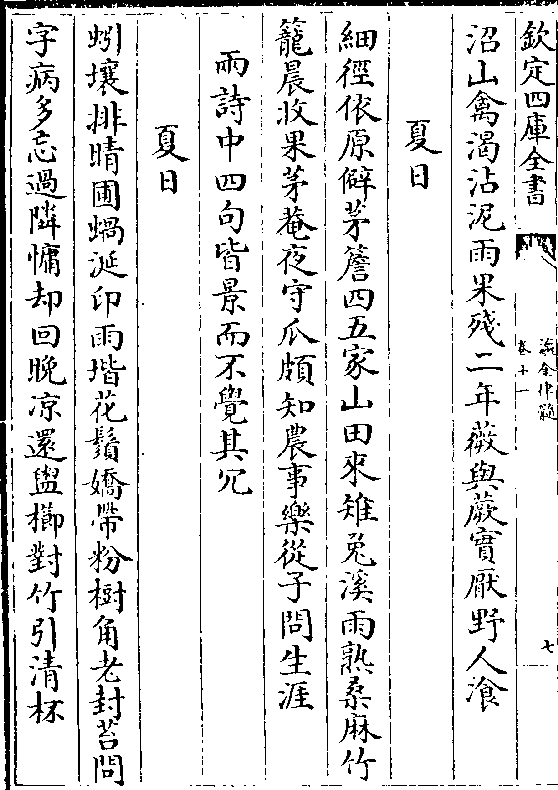 欽定四庫全書
瀛奎律髓
卷十一
七
沼山禽渴沾泥雨果殘二年薇與蕨實厭野人飡
夏日
細徑依原僻茅簷四五家山田來雉兔溪雨熟桑麻竹
籠晨收果茅菴夜守瓜頗知農事樂從子問生涯
兩詩中四句皆景而不覺其冗
夏日
蚓壤排晴圃蝸涎印雨堦花鬚嬌帶粉樹角老封苔問
字病多忘過隣慵却回晚凉還盥櫛對竹引清杯